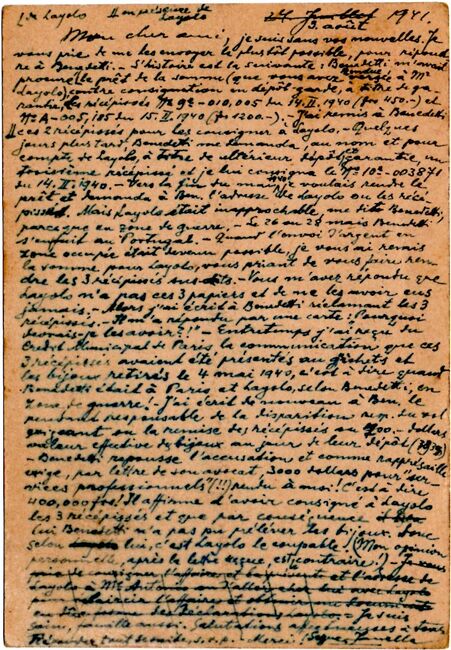 1. de Layolo II en présence de Layolo
3. août 1941.
Mon cher ami, je suis sans vos nouvelles. Je
vous prie de me les envoyer le plus tôt possible, pour répondre
à Benedetti. - L'histoire est la suivante: Benedetti m'avait
procuré le prêt de la somme (que vous avez rendue à Me
Layolo), contre consignation en dépôt garde, à titre de garantie,
des récépissés No 9a - 010,005 du 14.II.1940 (frs 450.-) et
No A - 005,105 du 15.II.1940 (frs 1200.-). - J'ai remis à Benedetti
ces 2 récépissés pour les consigner à Layolo. - Quelques
jours plus tard, Benedetti me demanda, au nom et pour
compte de Layolo, à titre de ultérieur dépôt garantie, un
troisième récépissé et je lui consigna le No 10a - 003871
du 14.II.1940. - Vers la fin du mai 1940 je voulais rendre le
prêt et demanda à Ben. l'adresse de Layolo ou les récépissés.
Mais Layolo était inapprochable, me dit Benedetti,
parce que en zone de guerre. - Le 26 ou 28 mai Benedetti
s'enfuit au Portugal. - Quand l'envoi d'argent en
zone occupée était devenu possible, je vous ai remis
la somme pour Layolo, vous priant de vous faire rendre
les 3 récépissés susdits. - Vous m'avez répondu que
Layolo n'a pas ces 3 papiers et de ne les avoir eus
jamais. - Alors j'ai écrit à Benedetti réclamant les 3
récépissés. Il me répondu par une carte: "Pourquoi
devrais-je les avoir?!" - Entretemps j'ai reçu du
Crédit Municipal de Paris la communication que ces
3 récépissés avaient été présentés au guichets et
les bijoux retirés le 4 mai 1940, c'est à dire quand
Benedetti était à Paris et Layolo, selon Benedetti, en
zone de guerre! J'ai écrit de nouveau à Ben. le
rendant responsable de la disparition resp. du vol
en
ou la remise des récépissés ou 900.- dollars
valeur effective des bijoux au jour de leur dépôt
- Benedetti repousse l'accusation et comme rappresaille
exige, par lettre de son avocat, 3000 dollars pour "services
professionnels" (!!!) rendu à moi! C'est à dire
400,000 frs! Il affirme d'avoir consigné à Layolo
les 3 récépissés et que, par conséquence
lui Benedetti n'a pas pu prélever les bijoux. Donc
selon lui, c'est Layolo le coupable! (Mon opinion
personnelle, après la lettre reçue, est contraire.) Je vous
prie de consigner l'affaire et
et l'adresse de
Layolo à Me Antonio
avec Layolo
Je suis
sain, famille aussi. Salutations affectueuses à tous
Répondre tout de suite, s.v.p. - Merci!